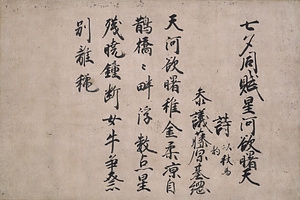 七夕同賦星河欲曙天
詩 以秋為韵
参議藤原基綱
天河欲曙稚金柔涼自
鵲橋〻畔浮数点星
残暁鍾断女牛争奈
別離穐